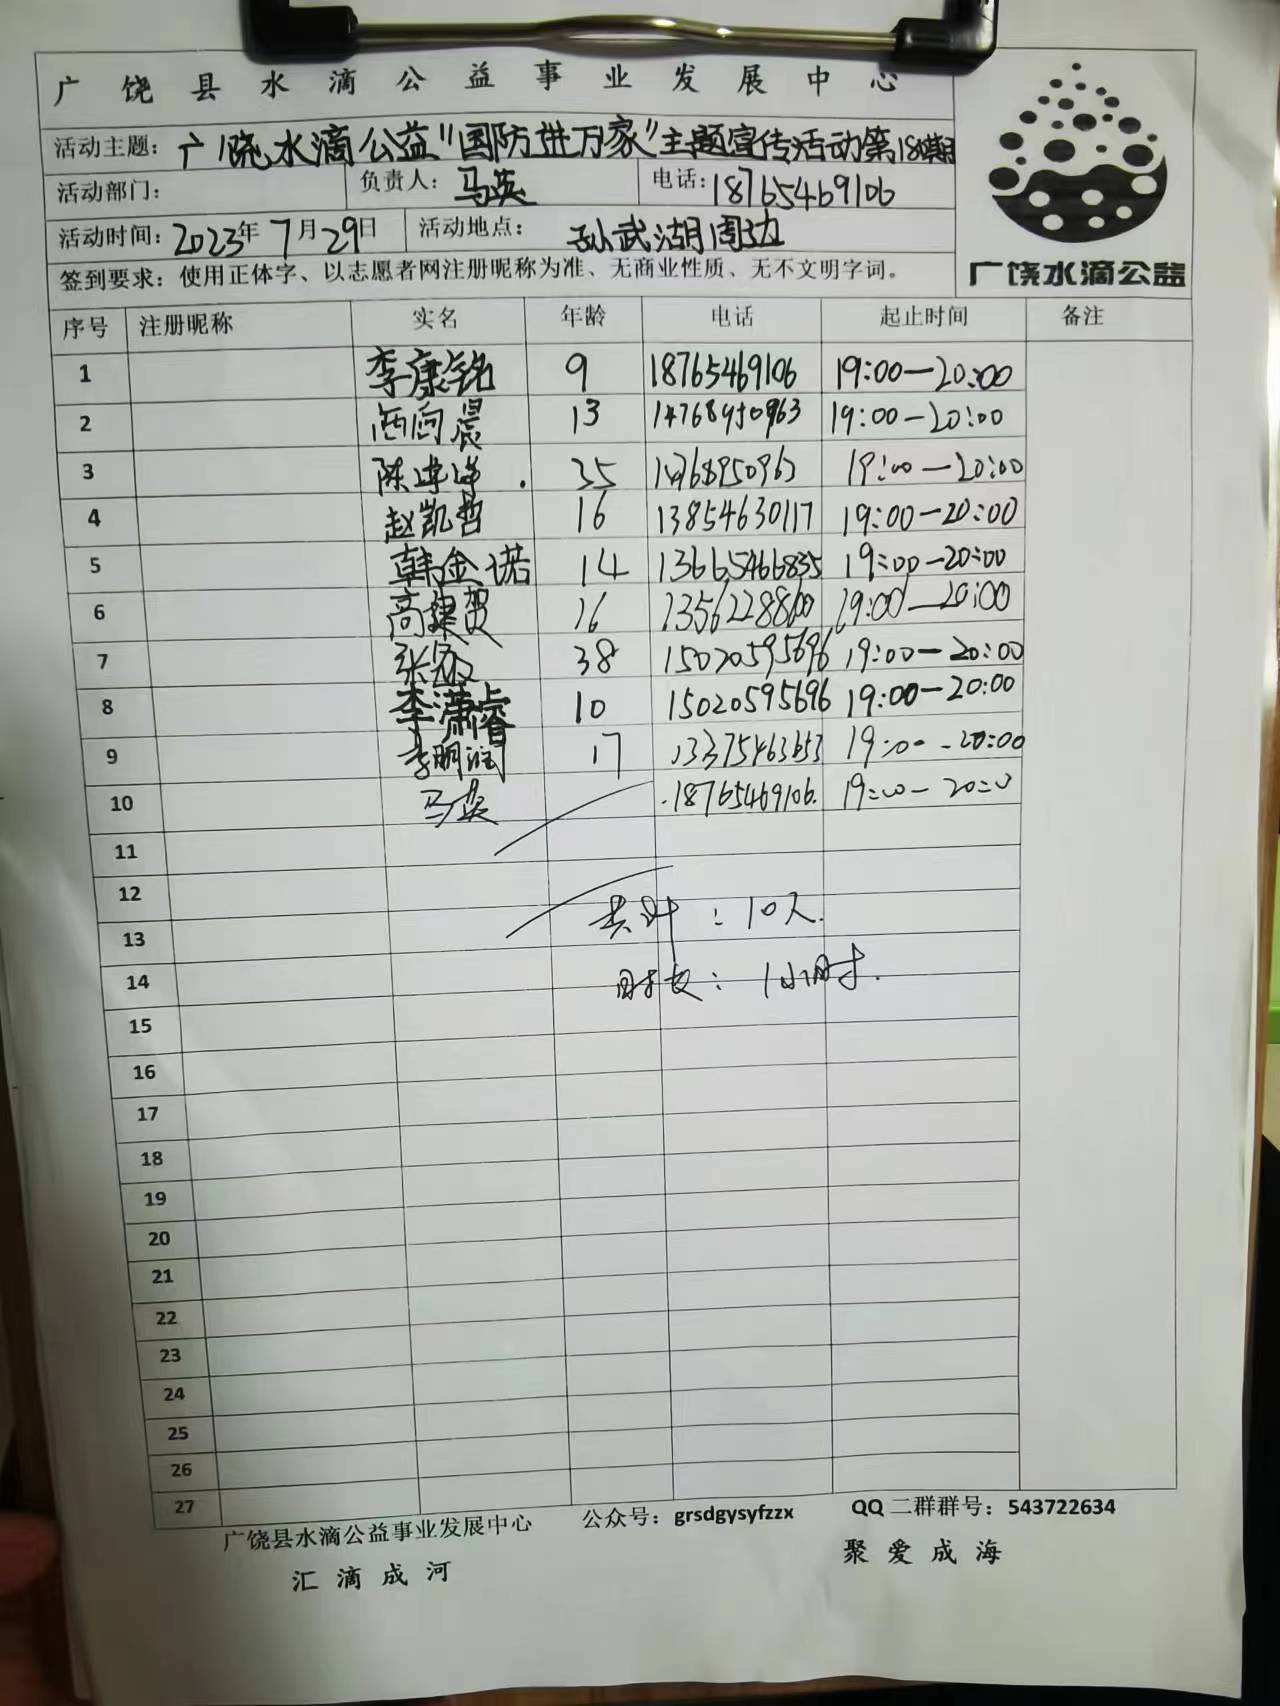 广饶县水滴公益事业发展中心
活动主题：广饶水滴公益"国防进万家"主题宣传活动第18期
活动部门： 负责人：马英 电话：18765469106
活动时间：2023年7月29日 活动地点：孙武湖周边
签到要求：使用正体字、以志愿者网注册昵称为准、无商业性质、无不文明字词。
广饶水滴公益
序号 注册昵称 实名 年龄 电话 起止时间 备注
1 李康铭 9 18765469106 19:00—20:00
2 晨 13 14768950963 19:00—20:00
3 陈 35 14768950963 19:00—20:00
4 赵凯哲 16 13854630117 19:00—20:00
5 韩金诺 14 13665466835 19:00—20:00
6 高建贺 16 13562288600 19:00—20:00
7 张 38 15020595696 19:00—20:00
8 李潇睿 10 15020595696 19:00—20:00
9 李明润 17 13375463653 19:00-20:00
10 马英 18765469106 19:00-20:00
11
12
13 共计：10人.
14 时长：1小时.
15
16
17
18
19
20
21
22
23
24
25
26
27
广饶县水滴公益事业发展中心 公众号：grsdgysyfzzx QQ二群群号：543722634
汇滴成河 聚爱成海